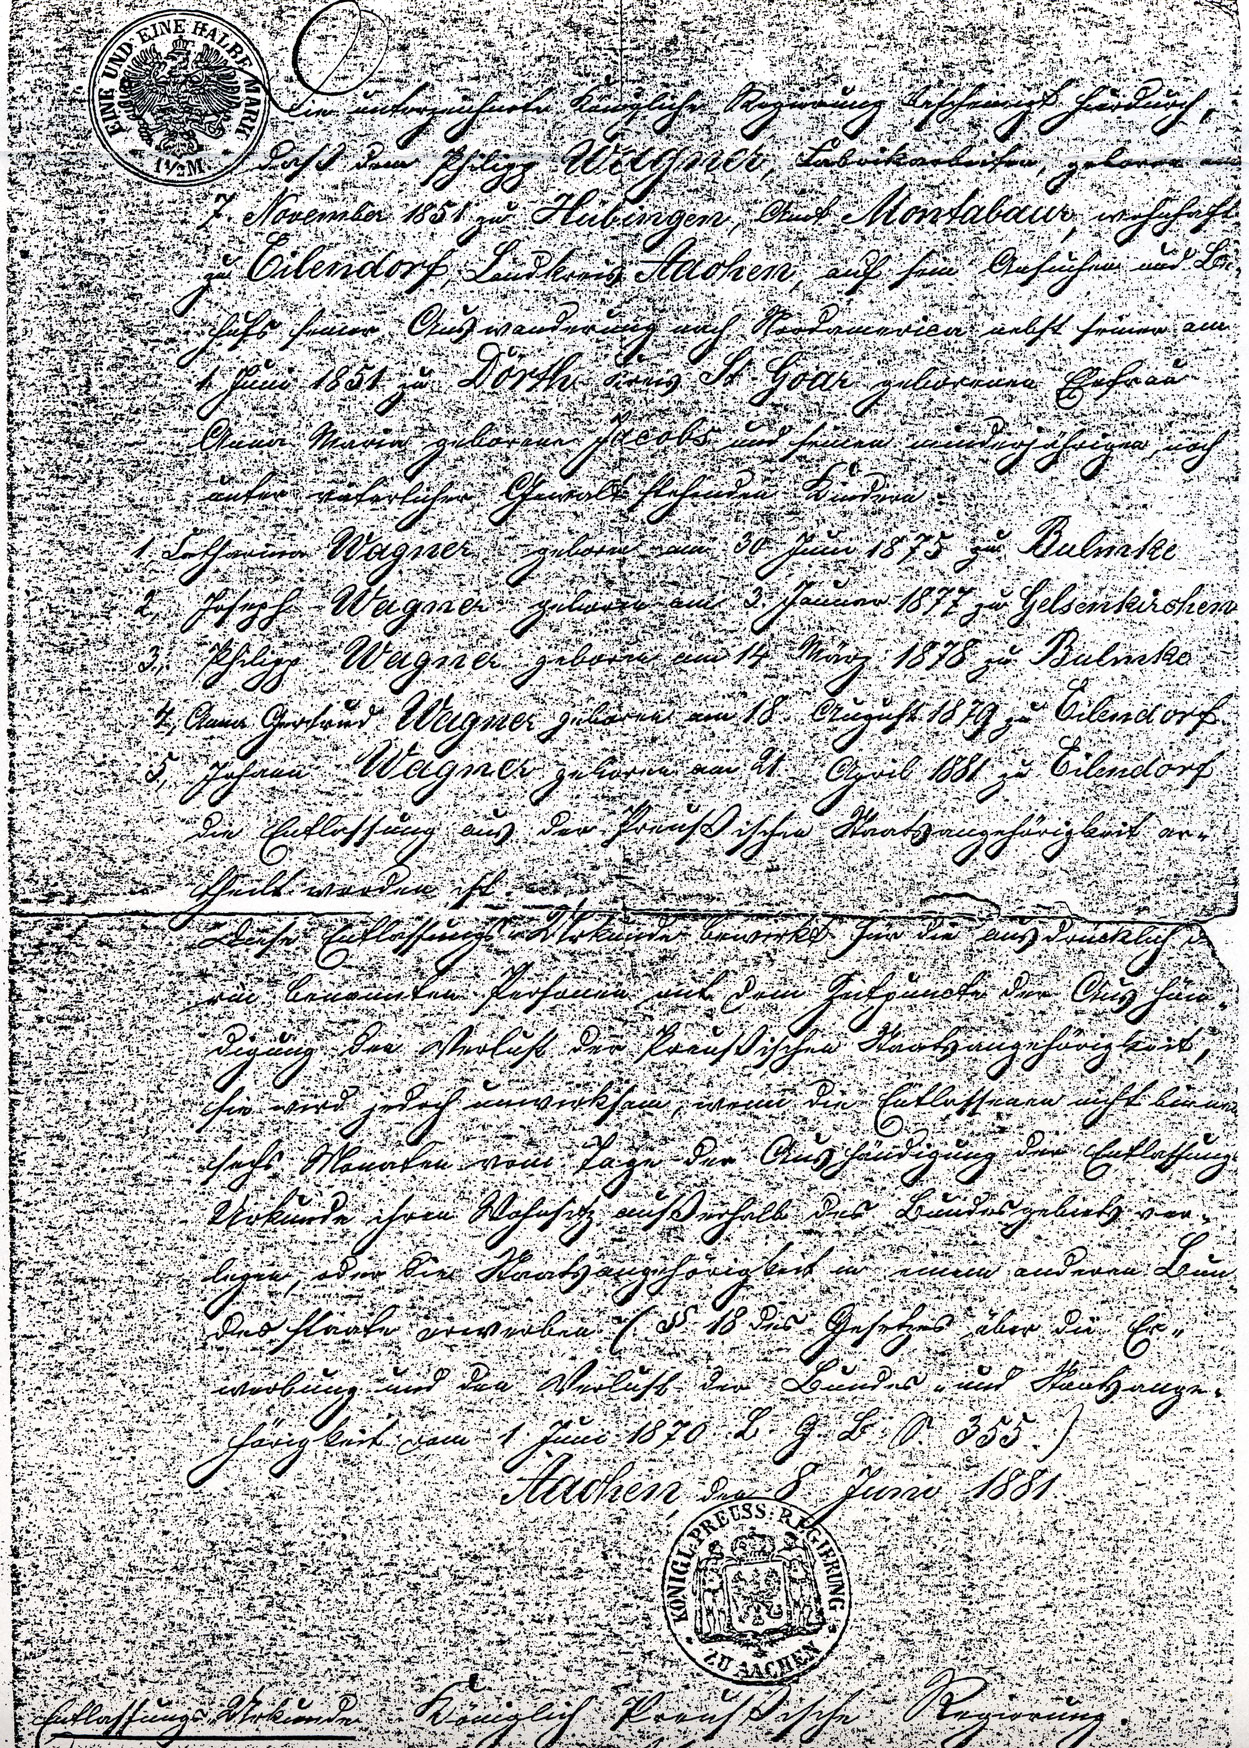 EINE UND EINE HALBE MARK
1 1/2 M.
Die unterzeichnete Königliche Regierung bescheinigt hierdurch,
daß dem Philipp Wagner, Fabrikarbeiter, geboren am
7. November 1851 zu Hübingen, Amt Montabaur, wohnhaft
zu Eilendorf, Landkreis Aachen, auf sein Ansuchen und Be-
hufs seiner Auswanderung nach Nordamerica nebst seiner am
1. Juni 1851 zu Dörth Kreis St. Goar geborenen Ehefrau
Anna Maria geborene Jacobs und seinen minderjährigen, noch
unter väterlicher Gewalt stehenden Kindern
1, Catharina Wagner geboren am 30 Juni 1875 zu Bulmke
2, Joseph Wagner geboren am 3. Januar 1877 zu Gelsenkirchen
3, Philipp Wagner geboren am 14 März 1878 zu Bulmke
4, Anna Gertrud Wagner geboren am 18. August 1879 zu Eilendorf
5, Johann Wagner geboren am 21 April 1881 zu Eilendorf
die Entlassung aus der Preußischen Staatsangehörigkeit er-
theilt worden ist.
Diese Entlassungs-Urkunde bewirkt für die ausdrücklich da-
rin benannten Personen mit dem Zeitpuncte der Aushän-
digung den Verlust der Preußischen Staatsangehörigkeit,
sie wird jedoch unwirksam, wenn die Entlassenen nicht binnen
sechs Monaten vom Tage der Aushändigung der Entlassungs
Urkunde ihren Wohnsitz außerhalb des Bundesgebiets ver-
legen, oder die Staatsangehörigkeit in einem anderen Bun
desstaate erwerben (§ 18 des Gesetzes über die Er-
werbung und den Verlust der Bundes- und Staatsange-
hörigkeit vom 1. Juni 1870 B. G. B. S. 355.)
Aachen, den 8 Juni 1881
KÖNIGL. PREUSS: REGIERUNG
ZU AACHEN
Entlassungs-Urkunde Königlich Preußische Regierung.